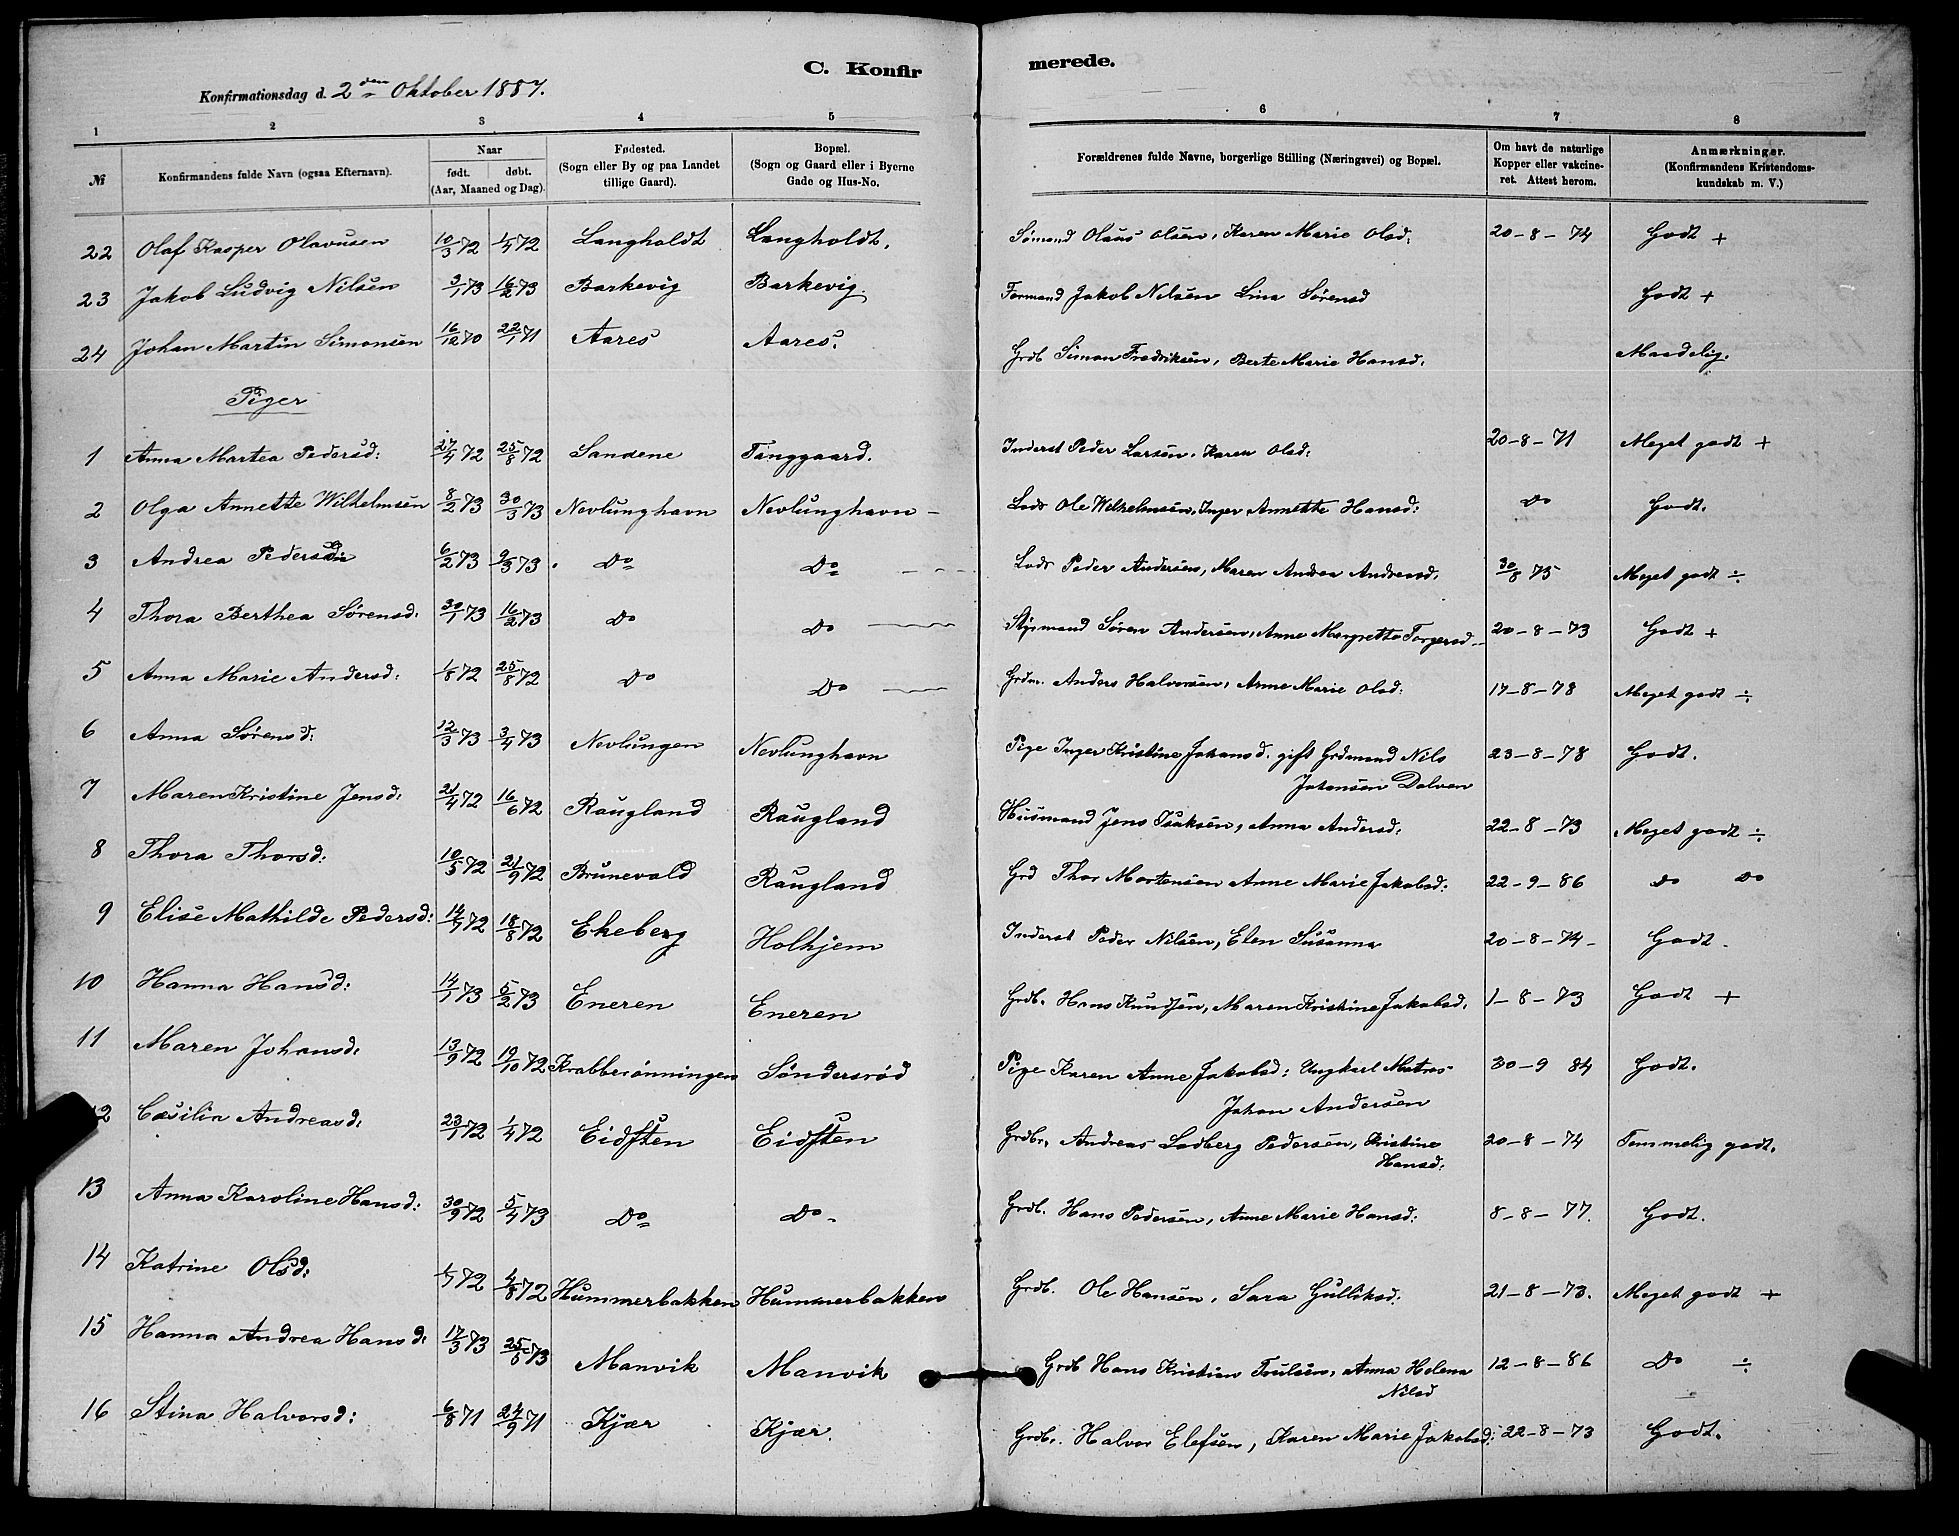 C. Konfirmerede.
Konfirmationsdag d. 2den Oktober 1887.
1 2 3 4 5 6 7 8
№ Konfirmandens fulde Navn (ogsaa Efternavn). Naar født. døbt. (Aar, Maaned og Dag). Fødested. (Sogn eller By og paa Landet tillige Gaard). Bopæl. (Sogn og Gaard eller i Byerne Gade og Hus-No. Forældrenes fulde Navne, borgerlige Stilling (Næringsvei) og Bopæl. Om havt de naturlige Kopper eller vakcineret. Attest herom. Anmærkninger. (Konfirmandens Kristendomskundskab m. V.)
22 Olaf Kasper Olavusen 10/3 72 1/4 72 Langholdt Langholdt. Sømand Olaus Olsen, Karen Marie Olsd: 20-8-74 Godt +
23 Jakob Ludvig Nilsen 3/1 73 16/2 73 Barkevig Barkevig. Formand Jakob Nilsen Lina Sørensd Godt +
24 Johan Martin Simonsen 16/12 70 22/1 71 Aares Aares. Grdb Simon Fredriksen, Berte Marie Hansd: Maadelig.
Piger
1 Anna Martea Pedersd: 27/4 72 25/8 72 Sandene Tanggaard. Inderst Peder Larsen, Karen Olsd: 20-8-71 Meget godt +
2 Olga Annette Wilhelmsen 8/2 73 30/3 73 Nevlunghavn Nevlunghavn - Lods Ole Wilhelmsen, Inger Annette Hansd: Do Godt.
3 Andrea Pedersd: 6/2 73 9/3 73 Do Do Lods Peder Andersen, Maren Andrea Andreasd. 30/8 75 Meget godt ÷
4 Thora Berthea Sørensd: 30/1 73 16/2 73 Do Do Styrmand Søren Andersen, Anne Margrette Torgersd 20-8-73 Godt +
5 Anna Marie Andersd: 1/8 72 25/8 72 Do Do Grdm. Anders Halvorsen, Anne Marie Olsd: 17-8-78 Meget godt ÷
6 Anna Sørensd: 12/3 73 3/4 73 Nevlungen Nevlunghavn Pige Inger Kristine Johansd. gift Grdmand Nils 23-8-78 Godt.
Johansen Dolven
7 Maren Kristine Jensd: 21/4 72 16/6 72 Raugland Raugland Husmand Jens Isaksen, Anna Andersd: 22-8-73 Meget godt ÷
8 Thora Thorsd: 10/5 72 21/9 72 Brunevald Raugland Grd Thor Mortensen Anne Marie Jakobsd: 22-9-86 Do Do
9 Elise Mathilde Pedersd: 14/7 72 18/8 72 Ekeberg Holhjem Inderst Peder Nilsen, Elen Susanna 20-8-74- Godt.
10 Hanna Hansd: 14/1 73 5/2 73 Eneren Eneren Grdb. Hans Knudsen, Maren Kristine Jakobsd. 1-8-73 Godt +
11 Maren Johansd: 13/9 72 19/10 72 Krabberønningen Søndersrød Pige Karen Anne Jakobsd: Ungkarl Matros 30-9 84 Godt.
Johan Andersen
12 Cæsilia Andreasd: 23/1 72 1/4 72 Eidsten Eidsten Grdbr. Andreas Lodberg Pedersen, Kristine 20-8-74 Temmelig godt.
Hansd:
13 Anna Karoline Hansd: 30/9 72 5/4 73 Do Do Grdb. Hans Pedersen, Anne Marie Hansd: 8-8-77. Godt.
14 Katrine Olsd: 1/7 72 4/8 72 Hummerbakken Hummerbakken Grdb. Ole Hansen, Sara Gulliksd: 21-8-73. Meget godt +
15 Hanna Andrea Hansd: 17/3 73 25/5 73 Manvik Manvik Grdb Hans Kristian Trulsen, Anna Helena 12-8-86 Do ÷
Nilsd
16 Stina Halvorsd: 6/8 71 24/9 71 Kjær Kjær. Grdb. Halvor Elefsen, Karen Marie Jakobsd: 22-8-73 Godt.